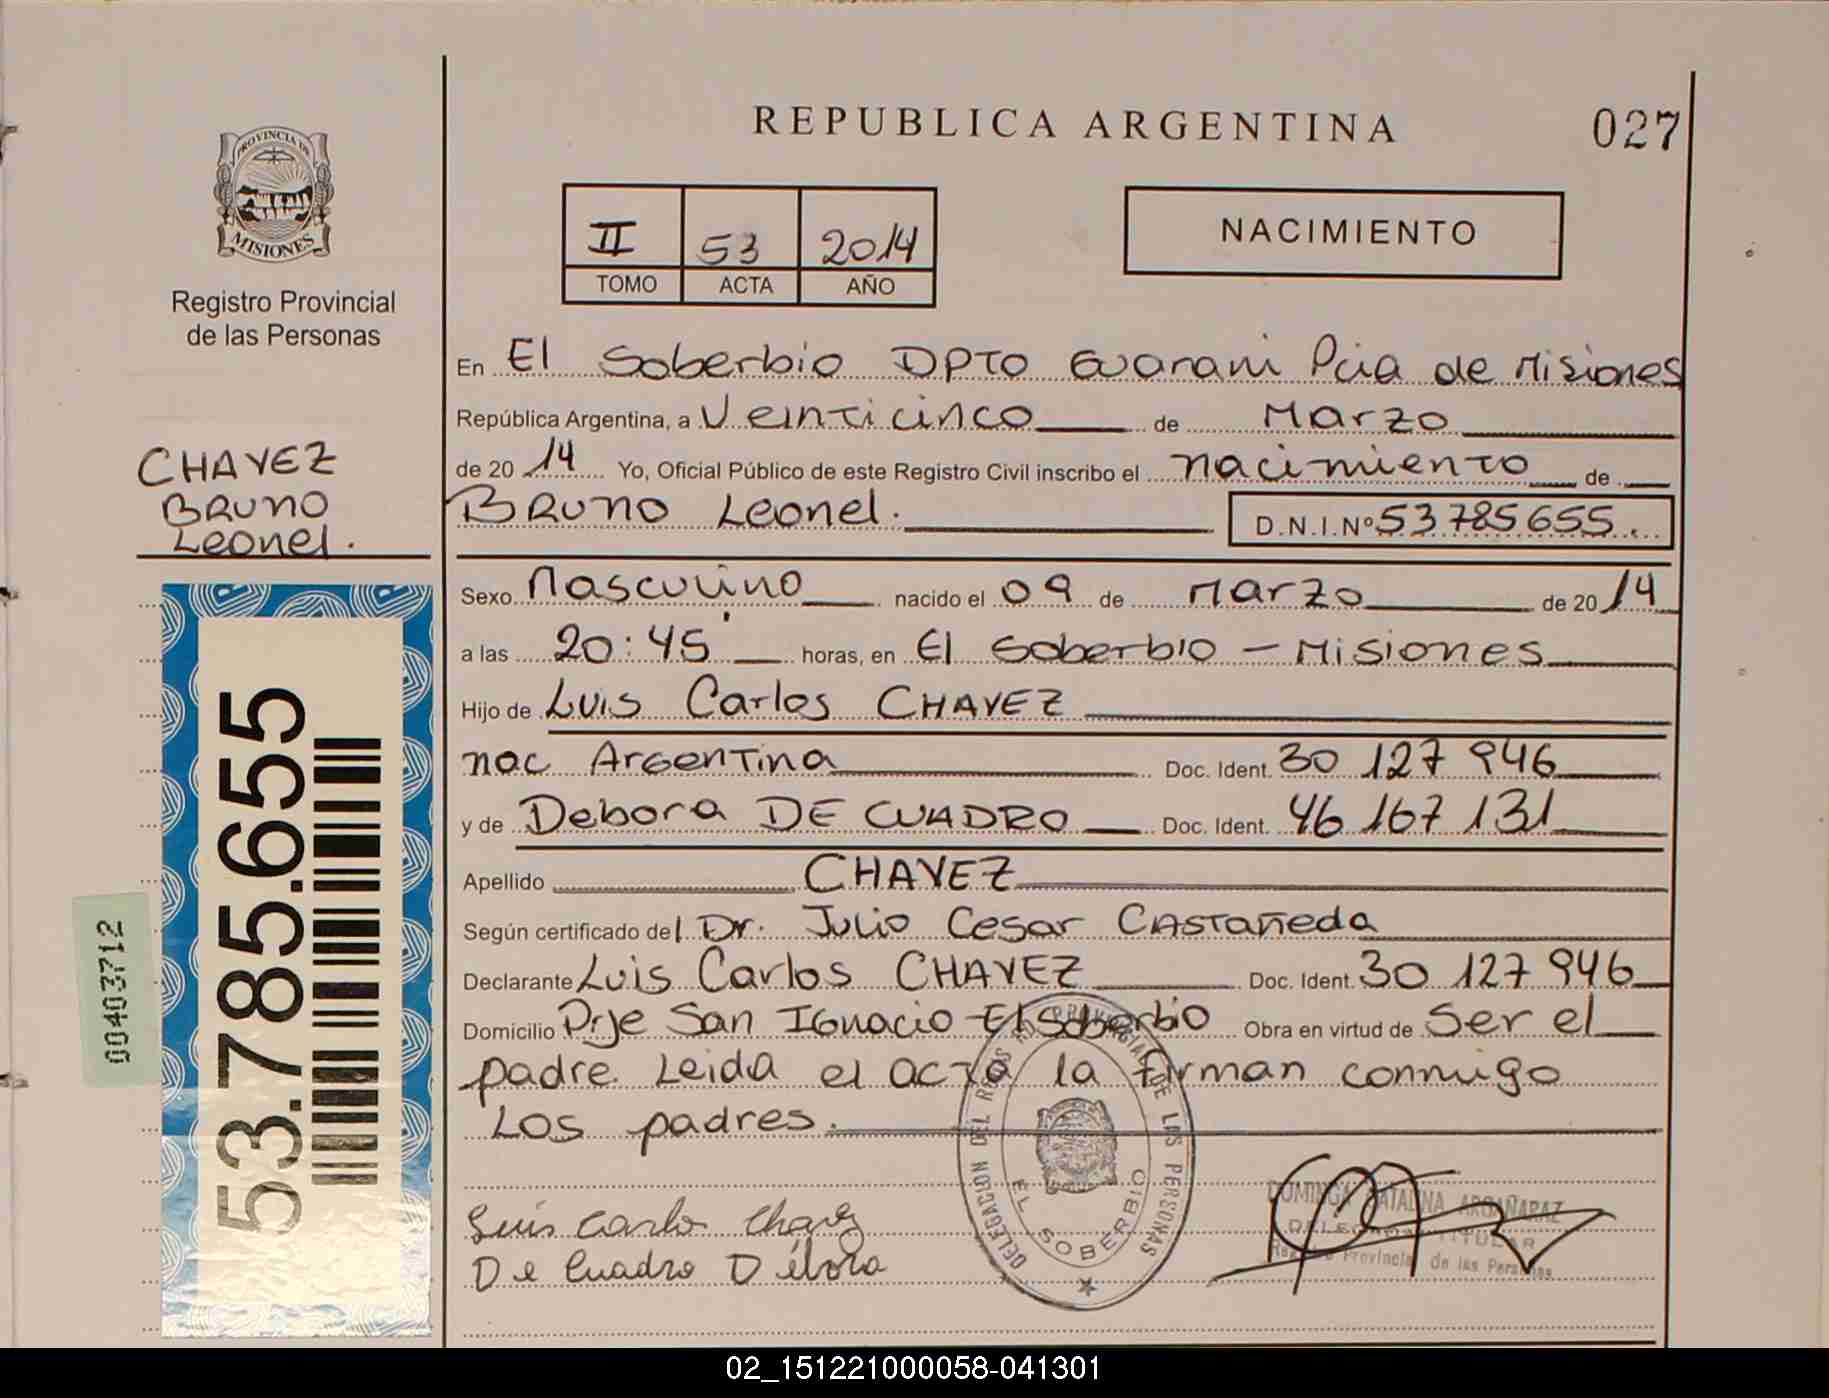 REPUBLICA ARGENTINA
027
PROVINCIA DE
MISIONES
Registro Provincial
de las Personas
II 53 2014
TOMO ACTA AÑO
NACIMIENTO
CHAVEZ
BRUNO
Leonel.
En El Soberbio DPTO Guarani Pcia de Misiones
República Argentina, a Veinticinco de Marzo
de 20 14 Yo, Oficial Público de este Registro Civil inscribo el nacimiento de
BRUNO Leonel.
D.N.I.Nº 53785655
Sexo Masculino nacido el 09 de Marzo de 20 14
a las 20:45' horas, en El Soberbio - Misiones
Hijo de Luis Carlos CHAVEZ
nac Argentina Doc. Ident. 30 127 946
y de Debora DE CUADRO Doc. Ident. 46 167 131
Apellido CHAVEZ
Según certificado del Dr. Julio Cesar Castañeda
Declarante Luis Carlos CHAVEZ Doc. Ident. 30 127 946
Domicilio Prje San Ignacio El Soberbio Obra en virtud de Ser el
padre. Leida el acta la firman conmigo
Los padres.
53.785.655
00403712
DELEGACION DEL REGISTRO PROVINCIAL DE LAS PERSONAS
EL SOBERBIO
Luis Carlo Chavez
De Cuadro Débora
DOMINGA CATALINA ARGAÑARAZ
DELEGADA TITULAR
Registro Provincial de las Personas
02_151221000058-041301